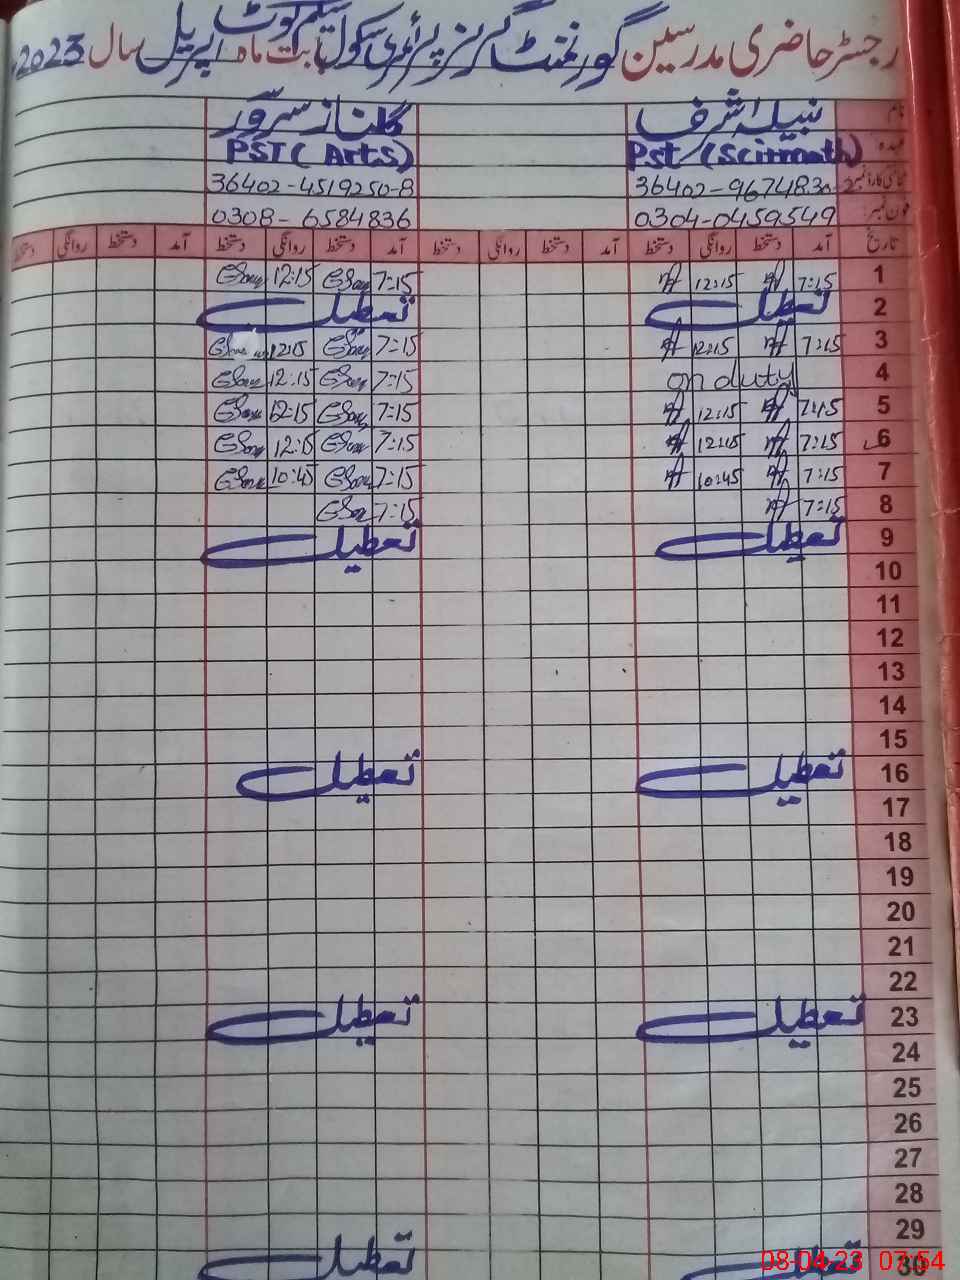 رجسٹر حاضری مدرسین گورنمنٹ گرلز پرائمری سکول سلیم کوٹ بابت ماہ اپریل سال 2023
نام نبیلہ اشرف گلناز سرور
عہدہ Pst (Sci-math) PST (Arts)
شناختی کارڈ نمبر 36402-4519250-8
فون نمبر: 0304-0459549 0308-6584836
تاریخ آمد دستخط روانگی دستخط آمد دستخط روانگی دستخط آمد دستخط روانگی دستخط آمد دستخط روانگی دستخط
1 7:15 12:15 7:15 12:15
2 تعطیل تعطیل
3 7:15 12:15 7:15 12:15
4 on duty 7:15 12:15
5 7:15 12:15 7:15 12:15
6 7:15 12:15 7:15 12:15
7 7:15 10:45 7:15 10:45
8 7:15 7:15
9 تعطیل تعطیل
10
11
12
13
14
15
16 تعطیل تعطیل
17
18
19
20
21
22
23 تعطیل تعطیل
24
25
26
27
28
29
30 تعطیل تعطیل
08-04-23 07:54